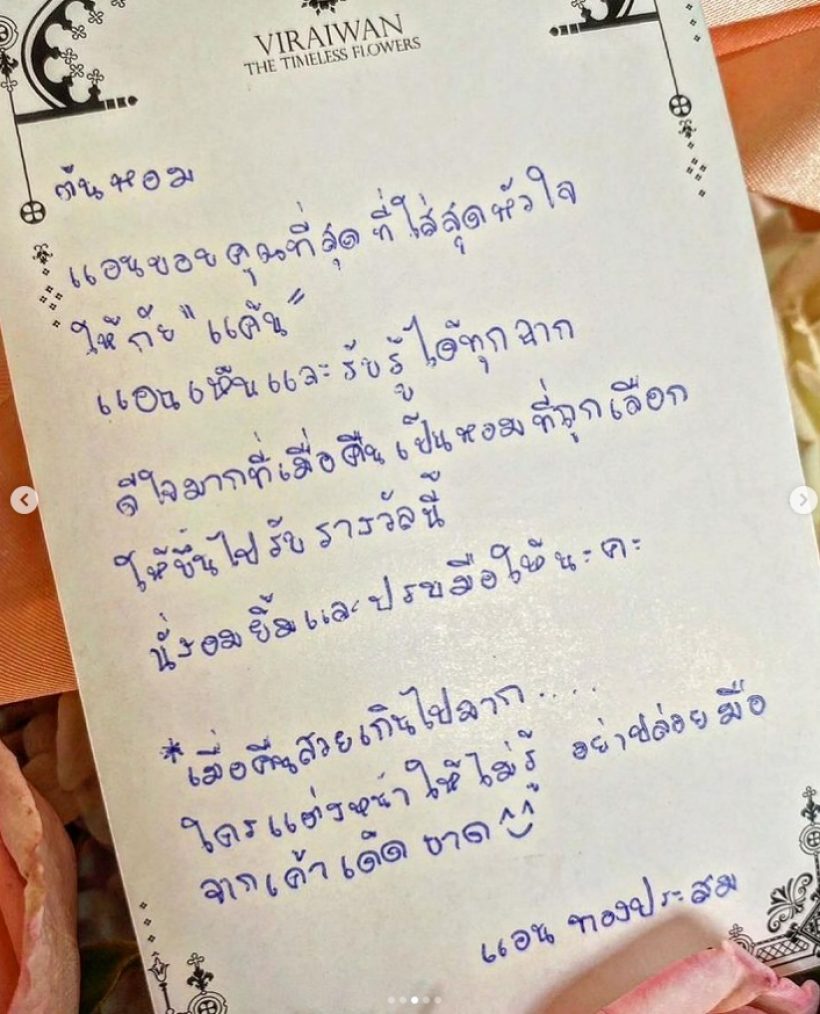 VIRAIWAN
THE TIMELESS FLOWERS
ต้นหอม
แอนขอบคุณที่สุด ที่ใส่สุดหัวใจ
ให้กับ "แค้น"
แอนเห็นและรับรู้ได้ทุกฉาก
ดีใจมากที่เมื่อคืนเป็นหอมที่ถูกเลือก
ให้ขึ้นไปรับรางวัลนี้
นั่งอมยิ้มและปรบมือให้นะคะ
*เมื่อคืนสวยเกินไปมาก....
ใครแต่งหน้าให้ไม่รู้ อย่าปล่อยมือ
จากเค้าเด็ดขาด ^^
แอน ทองประสม